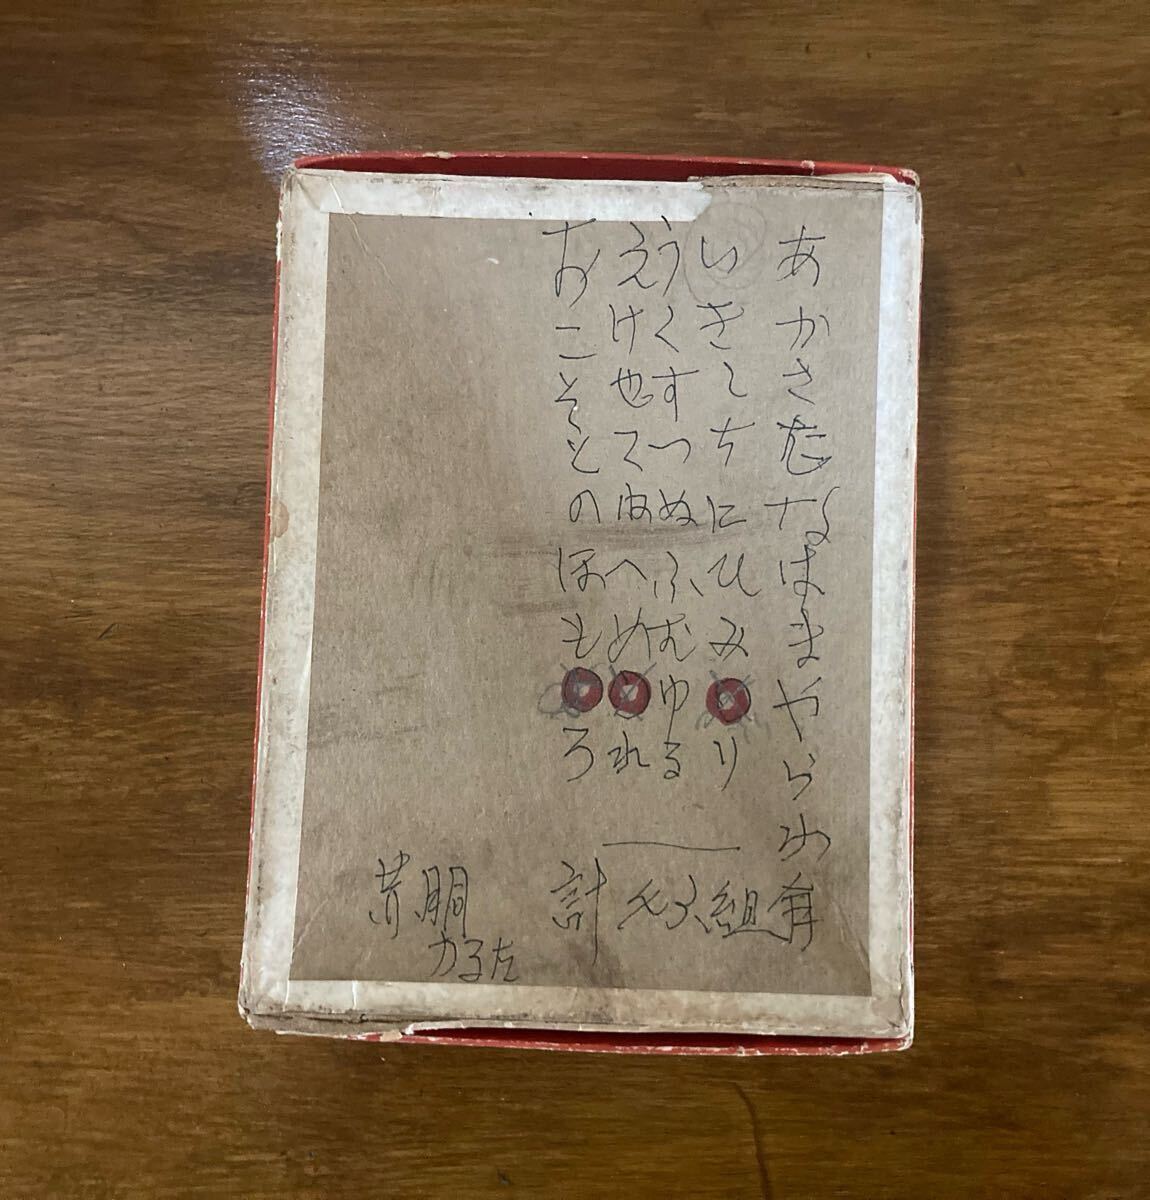 あかさたなはまやらわ
いきしちにひみり
うくすつぬふむゆる
えけせてねへめれ
おこそとのほもろ
組
計
かるた